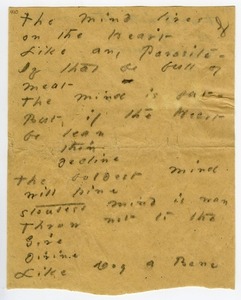 The mind lives
on the Heart
Like any Parasite -
If that is full of
meat
The mind is fat -
But if the Heart
be lean
thin
decline
The boldest mind
will pine
stoutest mind is wan
Throw not to the
Give
Divine
Like Dog a Bone